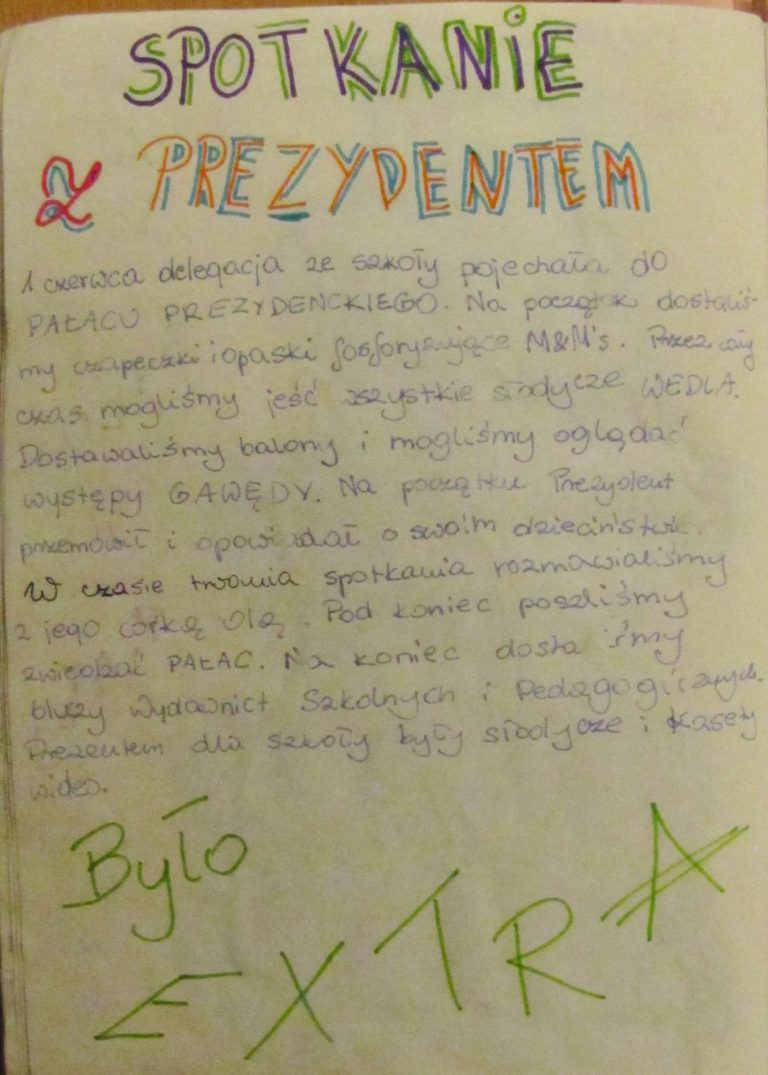 SPOTKANIE
Z PREZYDENTEM
1 czerwca delegacja ze szkoły pojechała do
PAŁACU PREZYDENCKIEGO. Na początek dostaliś-
my czapeczki i opaski fosforyzujące M&M's. Przez cały
czas mogliśmy jeść wszystkie słodycze WEDLA.
Dostawaliśmy balony i mogliśmy oglądać
występy GAWĘDY. Na początku Prezydent
przemówił i opowiadał o swoim dzieciństwie.
W czasie trwania spotkania rozmawialiśmy
z jego córką Olą. Pod koniec poszliśmy
zwiedzać PAŁAC. Na koniec dostaliśmy
bluzy Wydawnict Szkolnych i Pedagogicznych.
Prezentem dla szkoły były słodycze i kasety
wideo.
Było
EXTRA